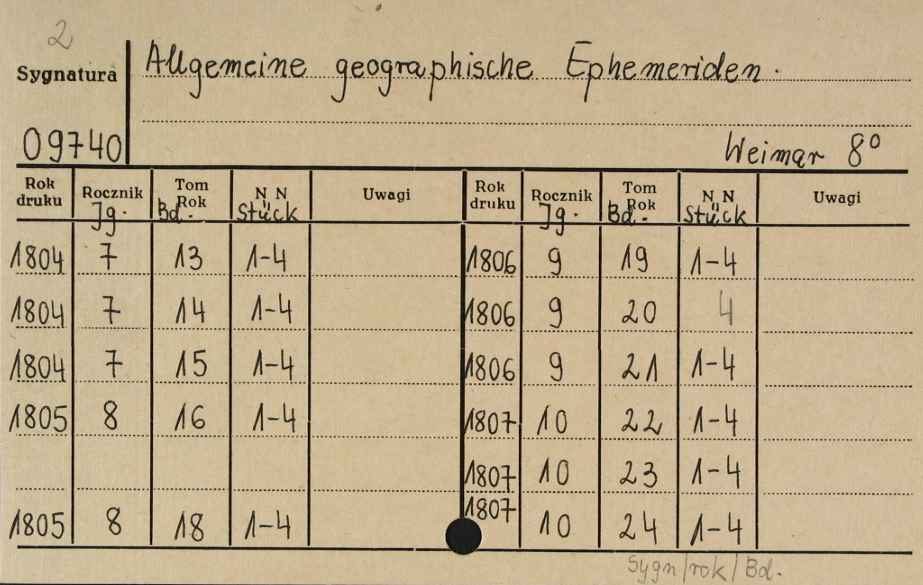 2
Sygnatura
Allgemeine geographische Ephemeriden.
09740
Weimar 8°
Rok druku Rocznik Jg. Tom Rok Bd. N N Stück Uwagi Rok druku Rocznik Jg. Tom Rok Bd. N N Stück Uwagi
1804 7 13 1-4 1806 9 19 1-4
1804 7 14 1-4 1806 9 20 4
1804 7 15 1-4 1806 9 21 1-4
1805 8 16 1-4 1807 10 22 1-4
1807 10 23 1-4
1805 8 18 1-4 1807 10 24 1-4
Sygn/rok/Bd.